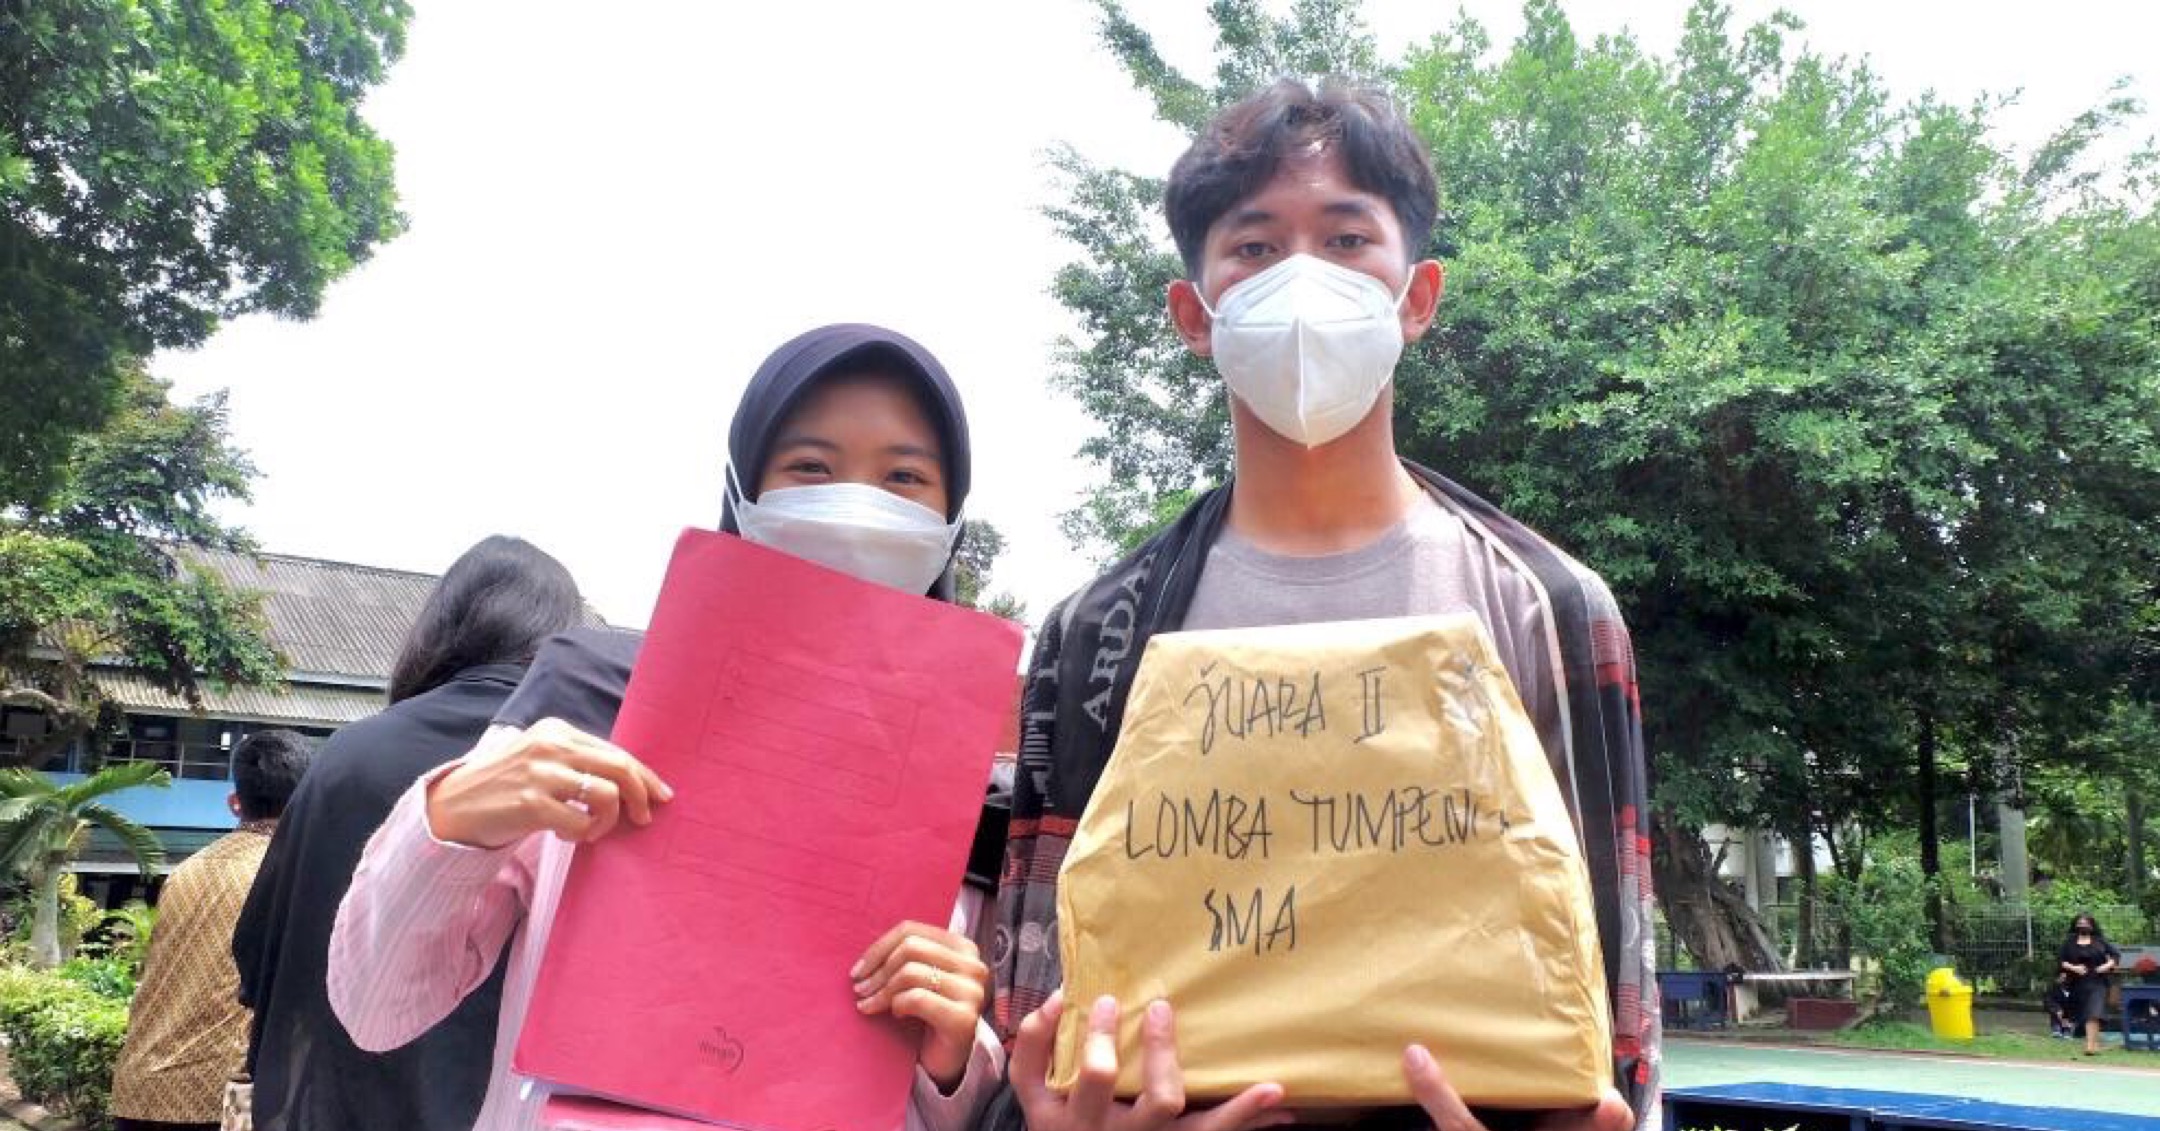 JUARA II
LOMBA TUMPENG
SMA